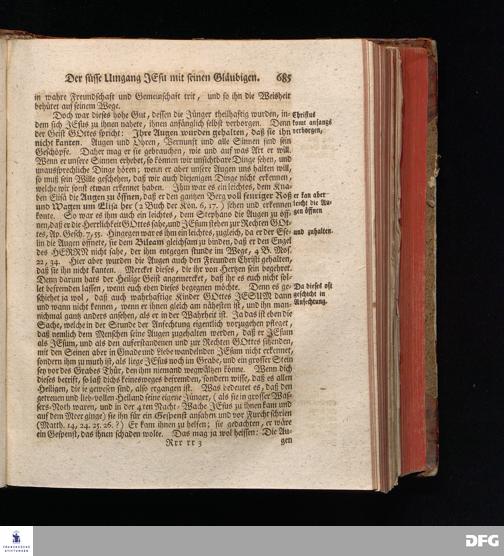 Der süsse Umgang JEsu mit seinen Gläubigen. 685
in wahre Freundschaft und Gemeinschaft trit, und so ihn die Weisheit
behütet auf seinem Wege.
Doch war dieses hohe Gut, dessen die Jünger theilhaftig wurden, in-
dem sich JEsus zu ihnen nahete, ihnen anfänglich selbst verborgen. Denn
der Geist GOttes spricht: Ihre Augen wurden gehalten, daß sie ihn
nicht kanten. Augen und Ohren, Vernunft und alle Sinnen sind sein
Geschöpfe. Daher mag er sie gebrauchen, wie und auf was Art er will.
Wenn er unsere Sinnen erhebet, so können wir unsichtbare Dinge sehen, und
unaussprechliche Dinge hören; wenn er aber unsere Augen uns halten will,
so muß sein Wille geschehen, daß wir auch diejenigen Dinge nicht erkennen,
welche wir sonst etwan erkennet haben. Ihm war es ein leichtes, dem Kna-
ben Elisä die Augen zu öffnen, daß er den gantzen Berg voll feuriger Roß
und Wagen um Elisa her (2 Buch der Kön. 6, 17.) sehen und erkennen
konte. So war es ihm auch ein leichtes, dem Stephano die Augen zu öff-
nen, daß er die Herrlichkeit GOttes sahe, und JEsum stehen zur Rechten GOt-
tes, Ap. Gesch. 7, 55. Hingegen war es ihm ein leichtes, zugleich, da er der Ese-
lin die Augen öffnete, sie dem Bileam gleichsam zu binden, daß er den Engel
des HERRN nicht sahe, der ihm entgegen stunde im Wege, 4 B. Mos.
22, 34. Hier aber wurden die Augen auch den Freunden Christi gehalten,
daß sie ihn nicht kanten. Mercket dieses, die ihr von Hertzen sein begehret.
Denn darum hats der Heilige Geist angemercket, daß ihr es euch nicht sol-
let befremden lassen, wenn euch eben dieses begegnen möchte. Denn es ge-
schiehet ja wol, daß auch wahrhaftige Kinder GOttes JESUM dann
und wann nicht kennen, wenn er ihnen gleich am nähesten ist, und ihn man-
nichmal gantz anders ansehen, als er in der Wahrheit ist. Ja das ist eben die
Sache, welche in der Stunde der Anfechtung eigentlich vorzugehen pfleget,
daß nemlich dem Menschen seine Augen zugehalten werden, daß er JEsum
als JEsum, und als den auferstandenen und zur Rechten GOttes sitzenden,
mit den Seinen aber in Gnade und Liebe wandelnden JEsum nicht erkennet,
sondern ihm zu muth ist, als liege JEsus noch im Grabe, und ein grosser Stein
sey vor des Grabes Thür, den ihm niemand wegwältzen könne. Wenn dich
dieses betrift, so laß dichs keinesweges befremden, sondern wisse, daß es allen
Heiligen, die je gewesen sind, also ergangen ist. Was bedeutet es, daß den
getreuen und lieb-vollen Heiland seine eigene Jünger, (als sie in grosser Was-
sers-Noth waren, und in der 4ten Nacht-Wache JEsus zu ihnen kam und
auf dem Meer ginge) sie ihn für ein Gespenst ansahen und vor Furcht schrien
(Matth. 14, 24. 25. 26.?) Er kam ihnen zu helfen; sie gedachten, er wäre
ein Gespenst, das ihnen schaden wolte. Das mag ja wol heissen: Die Au-
Rrr rr 3 gen
Christus
komt anfangs
verborgen,
er kan aber
leicht die Au-
gen öffnen
und zuhalten.
Da dieses oft
geschicht in
Anfechtung.
FRANCKESCHE
STIFTUNGEN
DFG